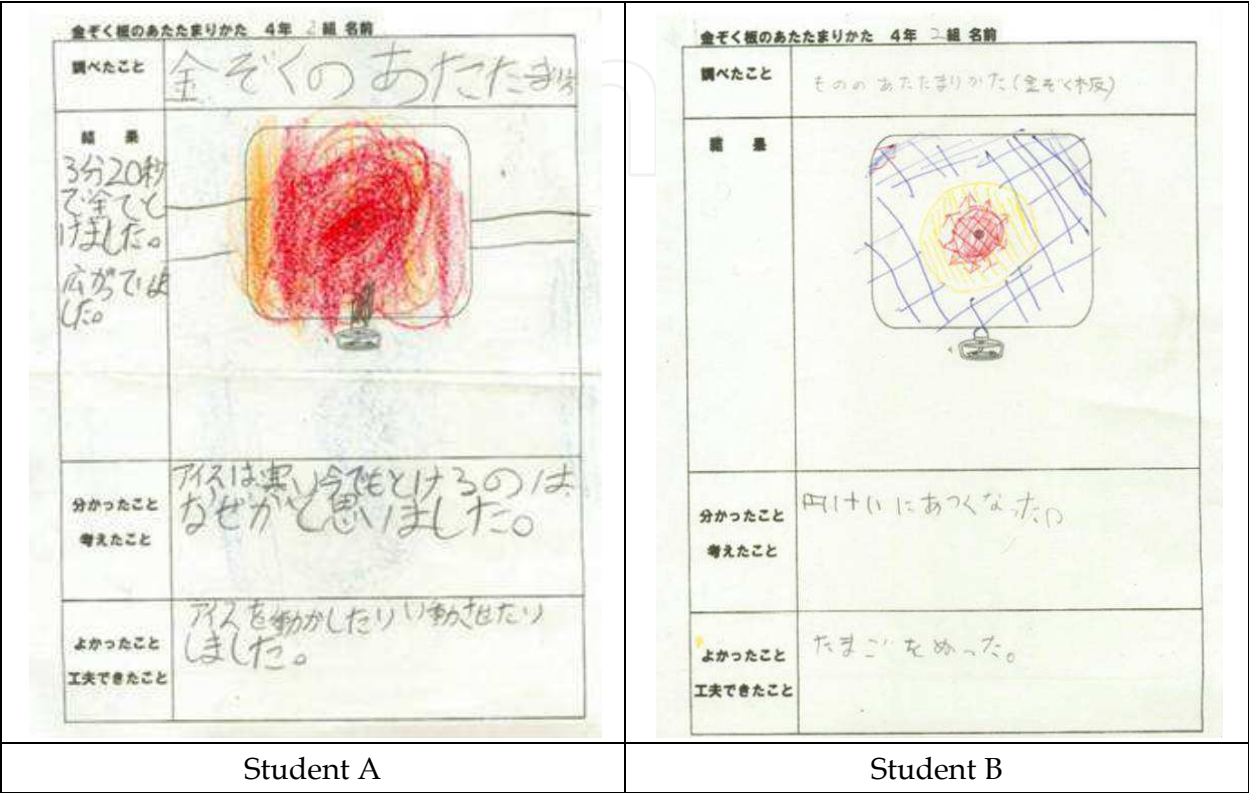 金ぞく板のあたたまりかた 4年 2組 名前
調べたこと
金ぞくのあたたまり方
結果
3分20秒
で全てと
けました。
広がっていま
した。
分かったこと
考えたこと
アイスは寒い今でもとけるのは、
なぜかと思いました。
よかったこと
工夫できたこと
アイスを動かしたりい動させたり
しました。
Student A
金ぞく板のあたたまりかた 4年 2組 名前
調べたこと
もののあたたまりかた(金ぞく板)
結果
分かったこと
考えたこと
円けいにあつくなった。
よかったこと
工夫できたこと
たまごをぬった。
Student B